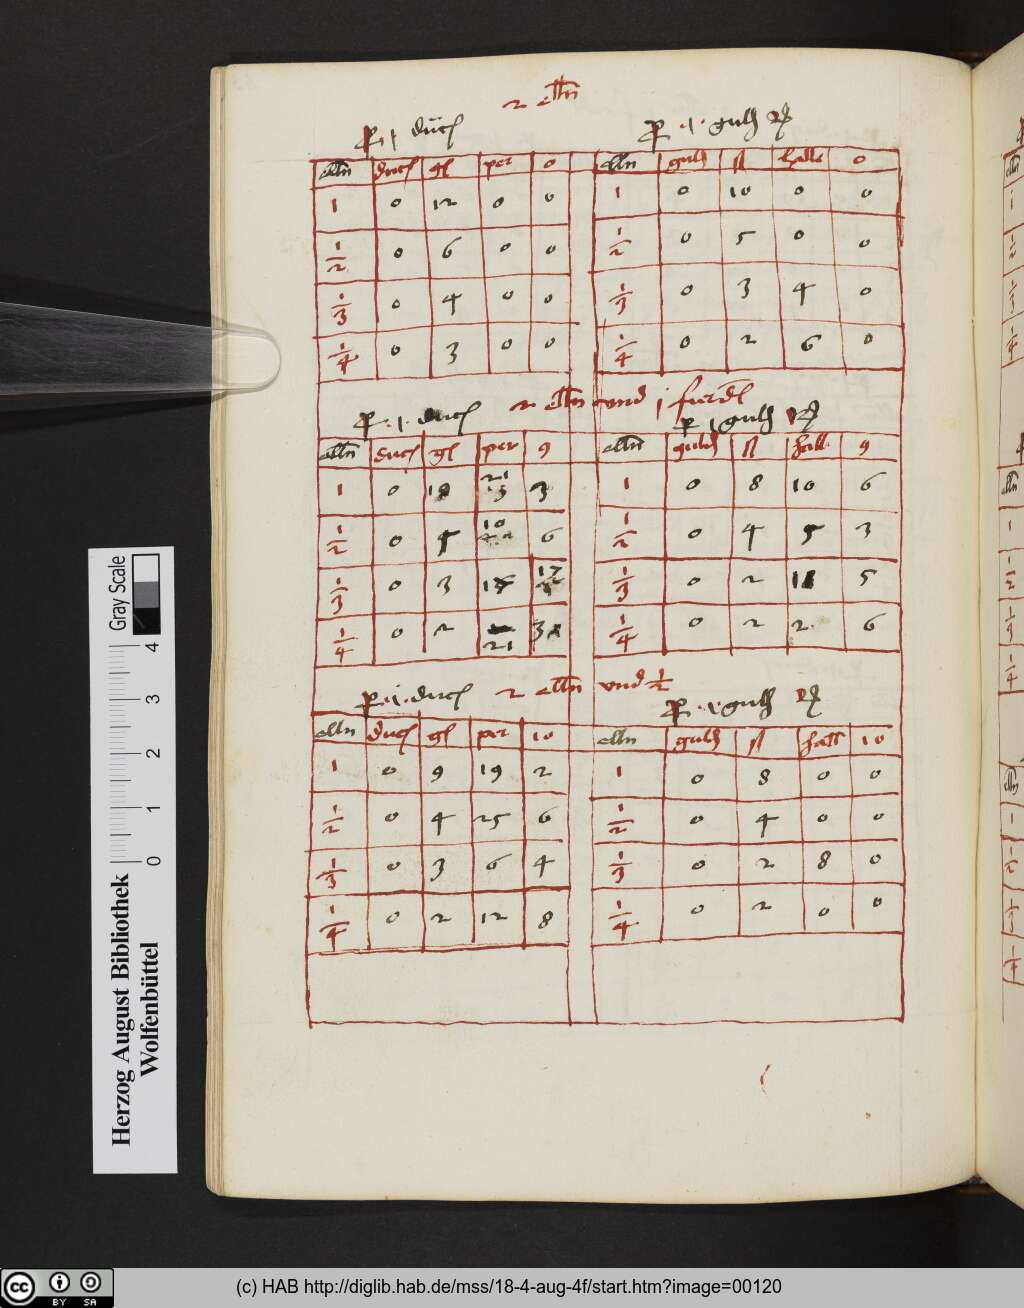 2 elln
per 1 duc per 1 guld
elln duc gl per 0 elln guld ß halle 0
1 0 12 0 0 1 0 10 0 0
1/2 0 6 0 0 1/2 0 5 0 0
1/3 0 4 0 0 1/3 0 3 4 0
1/4 0 3 0 0 1/4 0 2 6 0
2 elln vnd j fierdl
per 1 duc per 1 guld
elln duc gl per 9 elln guld ß hall 9
1 0 21 3 1 0 8 10 6
1/2 0 10 6 1/2 0 4 5 3
1/3 0 3 17 1/3 0 2 11 5
1/4 0 2 21 3 1/4 0 2 2 6
2 elln vnd 1/2
per 1 duc per 1 guld
elln duc gl per 10 elln guld ß hall 10
1 0 9 19 2 1 0 8 0 0
1/2 0 4 25 6 1/2 0 4 0 0
1/3 0 3 6 4 1/3 0 2 8 0
1/4 0 2 12 8 1/4 0 2 0 0
Gray Scale
4 3 2 1 0
Herzog August Bibliothek
Wolfenbüttel
cc BY SA
(c) HAB http://diglib.hab.de/mss/18-4-aug-4f/start.htm?image=00120